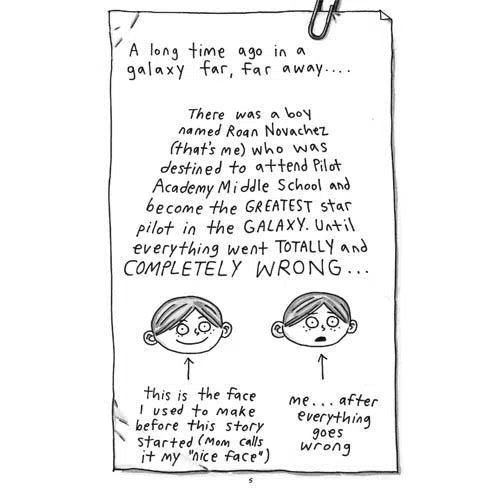 A long time ago in a
galaxy far, far away....
There was a boy
named Roan Novachez
(that's me) who was
destined to attend Pilot
Academy Middle School and
become the GREATEST star
pilot in the GALAXY. Until
everything went TOTALLY and
COMPLETELY WRONG...
this is the face
I used to make
before this story
started (Mom calls
it my "nice face")
me... after
everything
goes
wrong
5